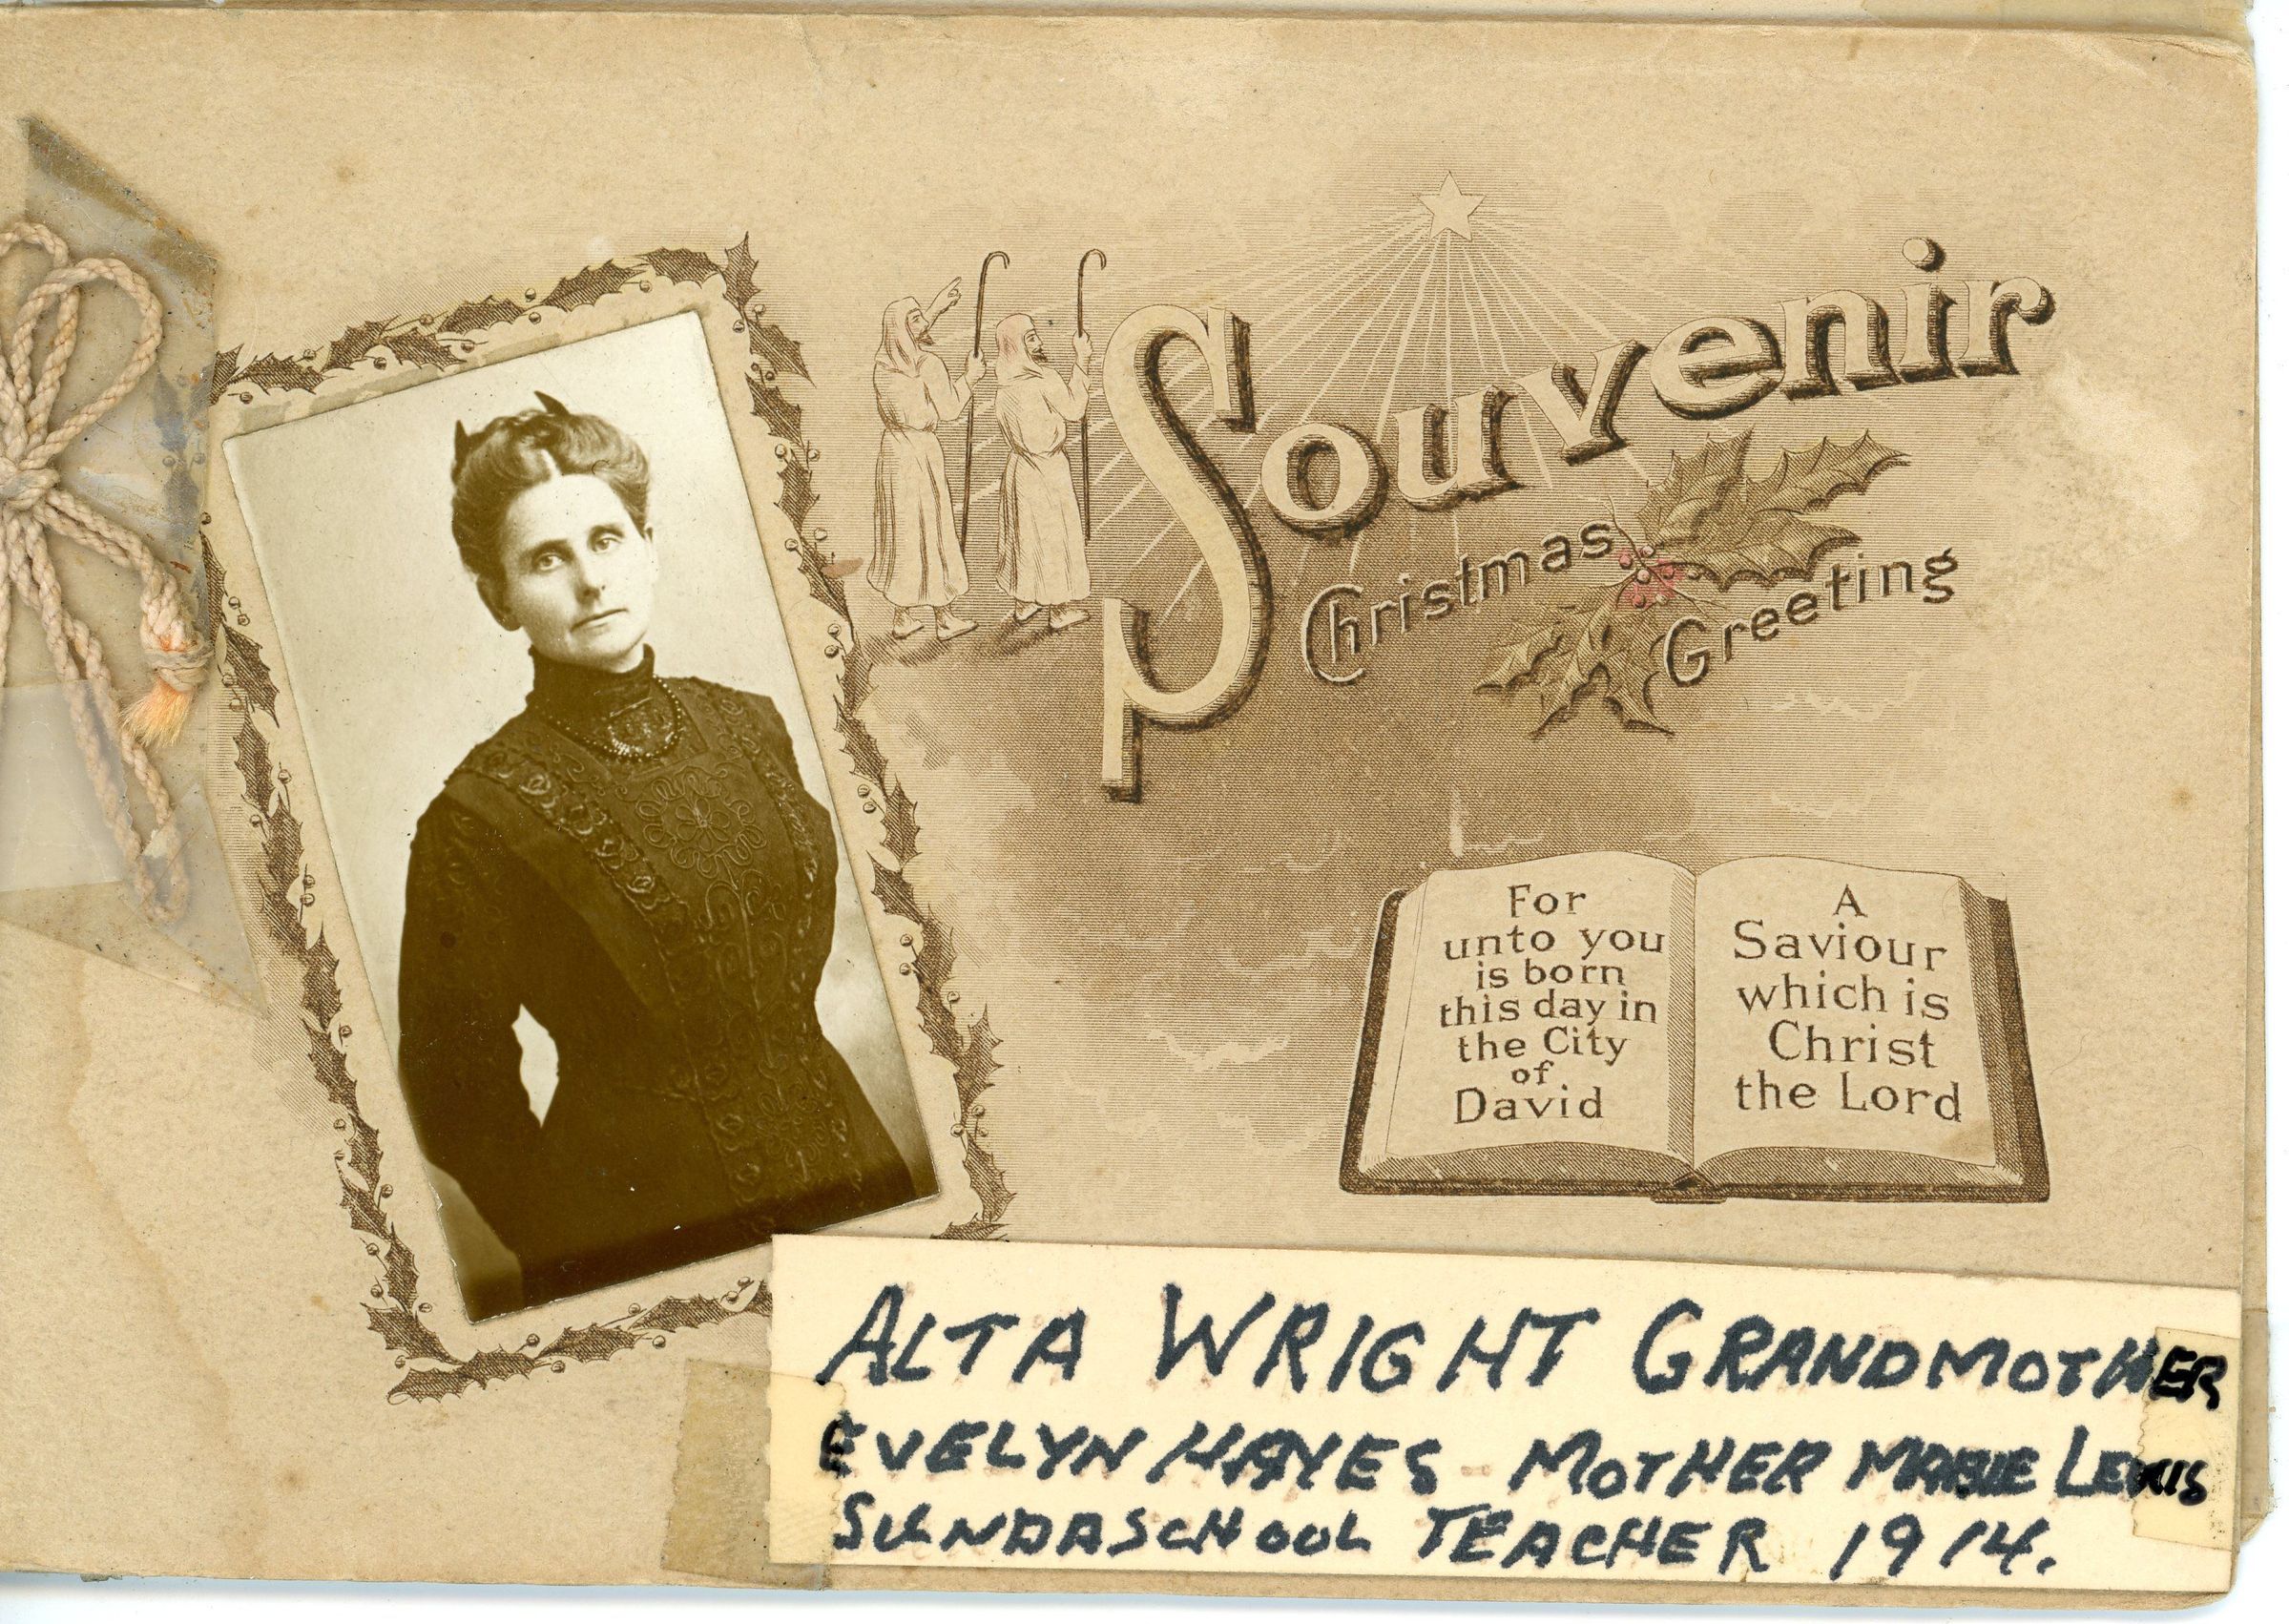 Souvenir
Christmas
Greeting
For
unto you
is born
this day in
the City
of
David
A
Saviour
which is
Christ
the Lord
ALTA WRIGHT GRANDMOTHER
EVELYN HAYES - MOTHER MABLE LEWIS
SUNDASCHOOL TEACHER 1914.